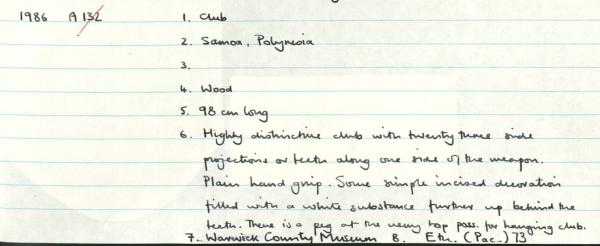 1986 A 132 1. Club
2. Samoa, Polynesia
3.
4. Wood
5. 98 cm long
6. Highly distinctive club with twenty three side
projections or teeth along one side of the weapon.
Plain hand grip. Some simple incised decoration
filled with a white substance further up behind the
teeth. There is a peg at the very top poss. for hanging club.
7. Warwick County Museum 8. Eth. (Pac.) 73